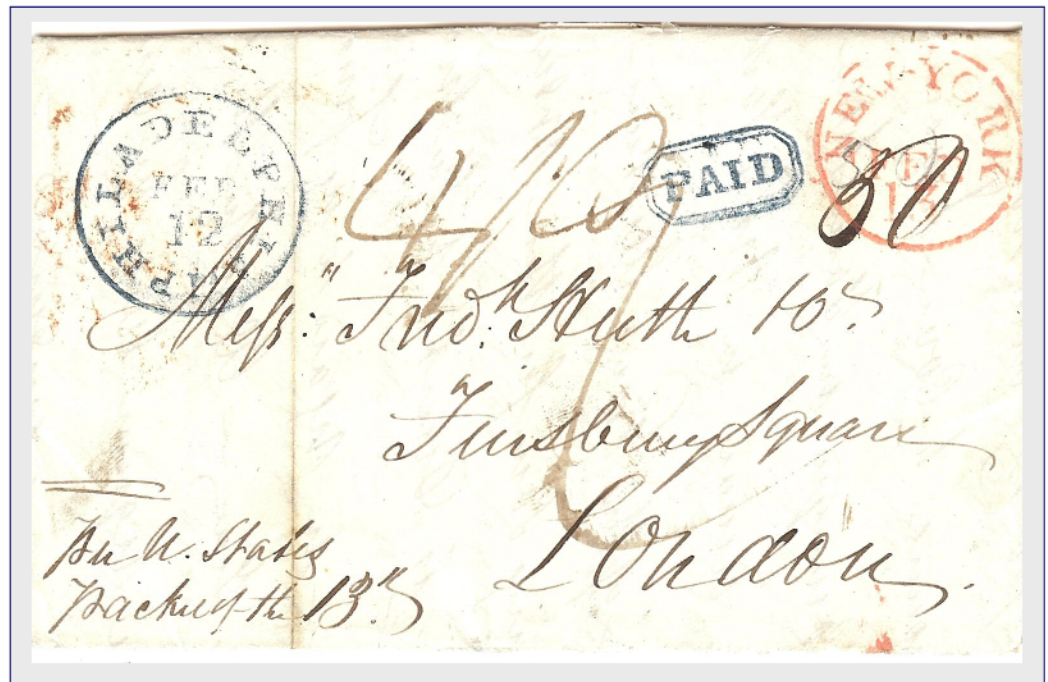 PHILADELPHIA
FEB
12
PAID
NEW-YORK
FEB
13
30
Mess.rs Fred.k Huth Co.
Finsbury Square
London.
Per U. States
Packet of the 13th